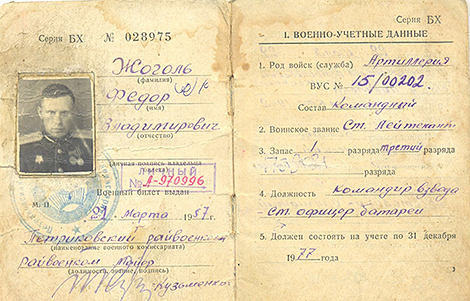 Серия БХ № 028975
Жоголь
(фамилия)
Федор
(имя)
Владимирович
(отчество)
Личная подпись владельца
билета
ЛИЧНЫЙ
№ А-970996
М. П.
Военный билет выдан
21 марта 1957 г.
Петриковский райвоенком
(наименование военного комиссариата)
райвоенком майор
(должность, звание, подпись)
Кузьменко
Серия БХ
I. ВОЕННО-УЧЕТНЫЕ ДАННЫЕ
1. Род войск (служба) Артиллерия
ВУС № 15/00202.
Состав Командный
2. Воинское звание Ст. Лейтенант
3. Запас 1 разряда третий разряда
разряда
4. Должность командир взвода
- Ст. офицер батареи
5. Должен состоять на учете по 31 декабря
1977 года